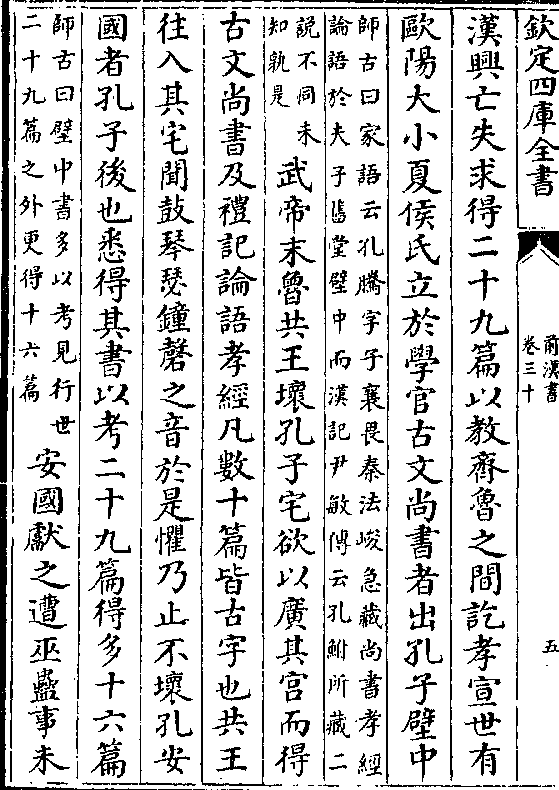 欽定四庫全書
前漢書
卷三十
五
漢興亡失求得二十九篇以教齊魯之間訖孝宣世有
歐陽大小夏侯氏立於學官古文尚書者出孔子壁中
師古曰家語云孔騰字子襄畏秦法峻急藏尚書孝經
論語於夫子舊堂壁中而漢記尹敏傳云孔鮒所藏二
說不同未
知孰是
武帝末魯共王壞孔子宅欲以廣其宫而得
古文尚書及禮記論語孝經凡數十篇皆古字也共王
往入其宅聞鼓琴瑟鐘磬之音於是懼乃止不壞孔安
國者孔子後也悉得其書以考二十九篇得多十六篇
師古曰壁中書多以考見行世
二十九篇之外更得十六篇
安國獻之遭巫蠱事未